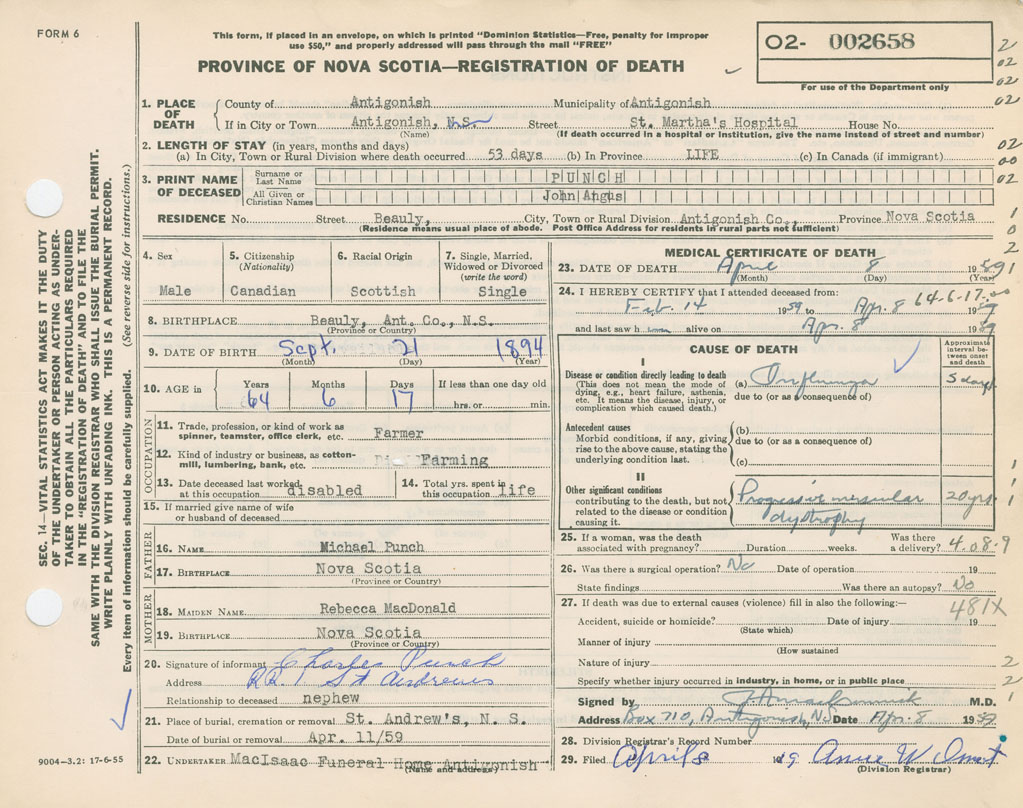 FORM 6
This form, if placed in an envelope, on which is printed "Dominion Statistics—Free, penalty for improper
use $50," and properly addressed will pass through the mail "FREE"
PROVINCE OF NOVA SCOTIA—REGISTRATION OF DEATH
02- 002658
For use of the Department only
2
02
02
02
02
00
02
1
0
2
1. PLACE OF DEATH
County of Antigonish Municipality of Antigonish
If in City or Town Antigonish, N.S. Street St. Martha's Hospital House No.
(Name) (If death occurred in a hospital or institution, give the name instead of street and number)
2. LENGTH OF STAY (in years, months and days)
(a) In City, Town or Rural Division where death occurred 53 days (b) In Province LIFE (c) In Canada (if immigrant)
3. PRINT NAME OF DECEASED
Surname or Last Name PUNCH
All Given or Christian Names John Angus
RESIDENCE No. Street Beauly, City, Town or Rural Division Antigonish Co., Province Nova Scotia
(Residence means usual place of abode. Post Office Address for residents in rural parts not sufficient)
4. Sex
Male
5. Citizenship
(Nationality)
Canadian
6. Racial Origin
Scottish
7. Single, Married,
Widowed or Divorced
(write the word)
Single
8. BIRTHPLACE Beauly, Ant. Co., N.S.
(Province or Country)
9. DATE OF BIRTH Sept. 21 1894
(Month) (Day) (Year)
10. AGE in Years Months Days If less than one day old
64 6 17 hrs. or min.
OCCUPATION
11. Trade, profession, or kind of work as
spinner, teamster, office clerk, etc. Farmer
12. Kind of industry or business, as cotton-
mill, lumbering, bank, etc. Farming
13. Date deceased last worked
at this occupation disabled
14. Total yrs. spent in
this occupation life
15. If married give name of wife
or husband of deceased
FATHER
16. NAME Michael Punch
17. BIRTHPLACE Nova Scotia
(Province or Country)
MOTHER
18. MAIDEN NAME Rebecca MacDonald
19. BIRTHPLACE Nova Scotia
(Province or Country)
20. Signature of informant Charles Punch
Address RR. 1 St Andrews
Relationship to deceased nephew
21. Place of burial, cremation or removal St. Andrew's, N. S.
Date of burial or removal Apr. 11/59
22. UNDERTAKER MacIsaac Funeral Home Antigonish
(Name and address)
MEDICAL CERTIFICATE OF DEATH
23. DATE OF DEATH April 8 1959
(Month) (Day) (Year)
1
24. I HEREBY CERTIFY that I attended deceased from: 64-6-17
Feb 14 1959 to Apr. 8 1959
and last saw him alive on Apr. 8 1959
CAUSE OF DEATH
Approximate
interval be-
tween onset
and death
I
Disease or condition directly leading to death
(This does not mean the mode of
dying, e.g., heart failure, asthenia,
etc. It means the disease, injury, or
complication which caused death.)
(a) Influenza 5 days
due to (or as a consequence of)
Antecedent causes
Morbid conditions, if any, giving
rise to the above cause, stating the
underlying condition last.
(b)
due to (or as a consequence of)
(c)
II
Other significant conditions
contributing to the death, but not
related to the disease or condition
causing it.
Progressive muscular 20 yrs.
dystrophy
1
1
1
25. If a woman, was the death
associated with pregnancy? Duration weeks. Was there
a delivery?
4.08.9
26. Was there a surgical operation? No Date of operation 19
State findings Was there an autopsy? No
27. If death was due to external causes (violence) fill in also the following:—
481X
Accident, suicide or homicide? Date of injury 19
(State which)
Manner of injury
(How sustained
Nature of injury
Specify whether injury occurred in industry, in home, or in public place
2
2
1
Signed by M.D.
Address Box 710, Antigonish, NS Date Apr. 8 1959
28. Division Registrar's Record Number
29. Filed April 8 19 Anne W
(Division Registrar)
SEC. 14—VITAL STATISTICS ACT MAKES IT THE DUTY
OF THE UNDERTAKER OR PERSON ACTING AS UNDER-
TAKER TO OBTAIN ALL THE PARTICULARS REQUIRED
IN THE "REGISTRATION OF DEATH" AND TO FILE THE
SAME WITH THE DIVISION REGISTRAR WHO SHALL ISSUE THE BURIAL PERMIT.
WRITE PLAINLY WITH UNFADING INK. THIS IS A PERMANENT RECORD.
Every item of information should be carefully supplied. (See reverse side for instructions.)
9004—3.2: 17-6-55